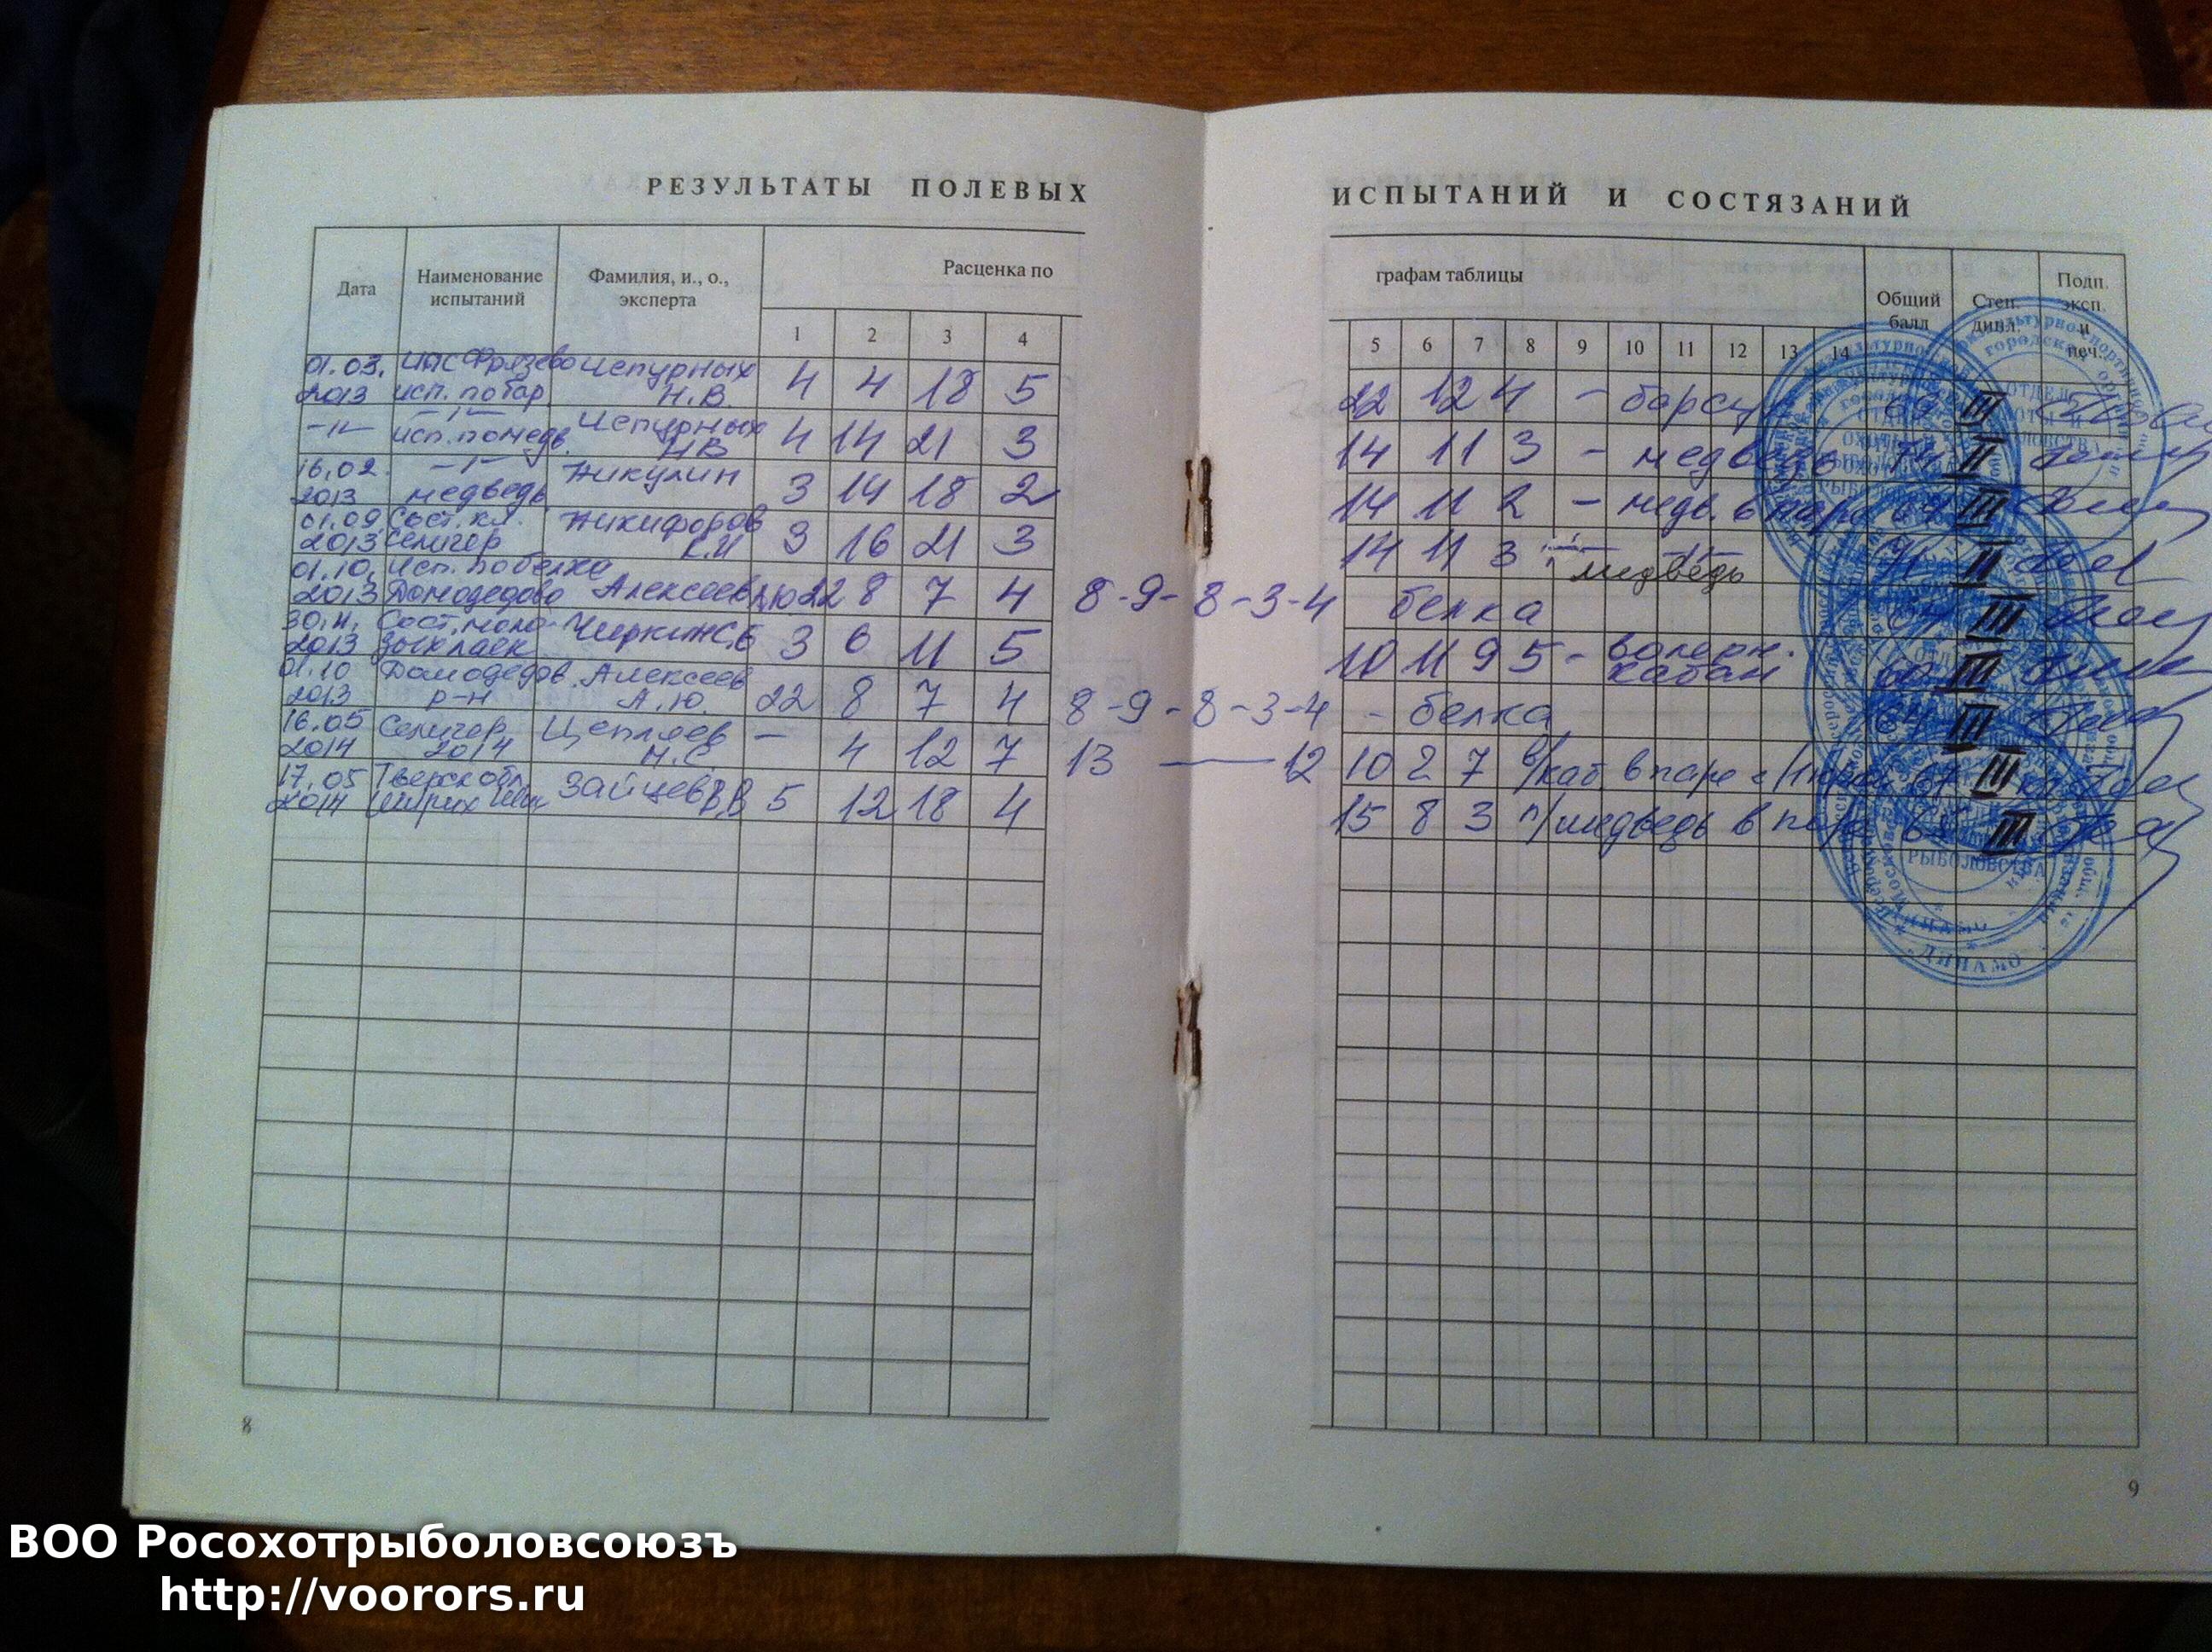 РЕЗУЛЬТАТЫ ПОЛЕВЫХ
Дата
Наименование испытаний
Фамилия, и., о., эксперта
Расценка по
1 2 3 4
01.03. Фрязево Чепурных
2013 исп. по бар. Н.В. 4 4 18 5
-"- исп. по медв. Чепурных Н.В. 4 14 21 3
16.02. -"- Никулин
2013 медведь 3 14 18 2
01.09 Сост. кл. Никифоров
2013 Селигер К.И 3 16 21 3
01.10. Исп. по белке
2013 Домодедово Алексеев 22 8 7 4 8-9-8-3-4
30.11. Сост. моло-
2013 3 6 11 5
01.10 Домодедов. Алексеев
2013 р-н А.Ю. 22 8 7 4 8-9-8-3-4
16.05 Селигер Цепляев
2014 2014 Н.С. — 4 12 7 13 — 12
17.05 Тверск обл. Зайцев В.В 5 12 18 4
2014
8
ИСПЫТАНИЙ И СОСТЯЗАНИЙ
графам таблицы
Общий балл
Степ. дипл.
Подп. эксп. и печ.
5 6 7 8 9 10 11 12 13 14
22 12 4 - барсук 69 III
14 11 3 - медведь 74 II
14 11 2 - медв. в паре 64 III
14 11 3 медведь 71 II
белка III
10 11 9 5 - вольерн. кабан 60 III
- белка 64 III
10 2 7 в/каб. в паре с 67 III
15 8 3 п/медведь в паре 65 III
РЫБОЛОВСТВА
ДИНАМО
9
ВОО Росохотрыболовсоюзъ
http://voorors.ru